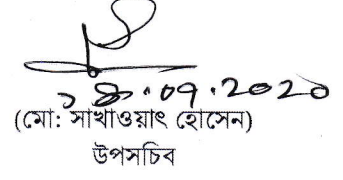 ১৪.০৭.২০২০
(মো: সাখাওয়াৎ হোসেন)
উপসচিব